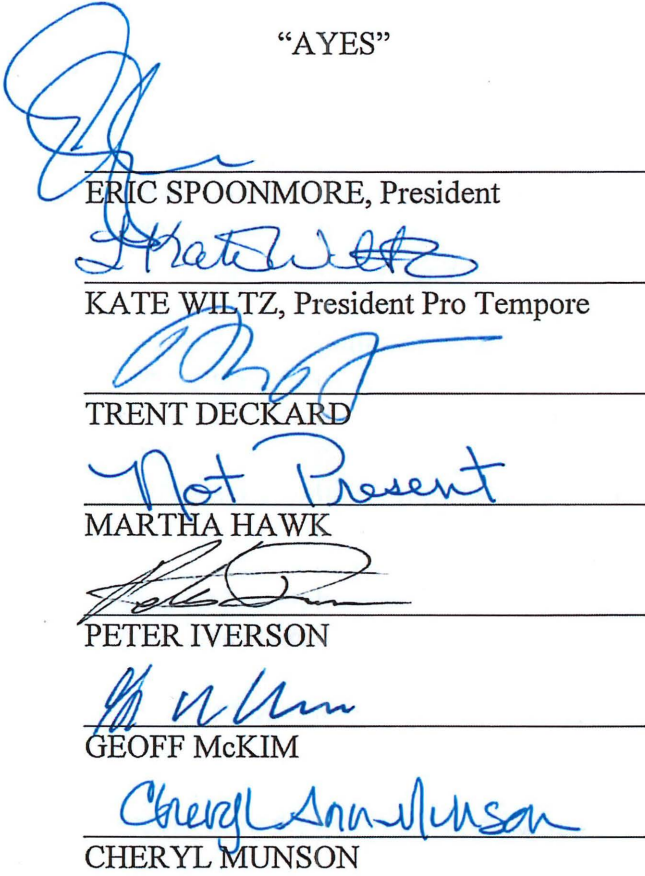 “AYES”
ERIC SPOONMORE, President
Kate Wiltz
KATE WILTZ, President Pro Tempore
TRENT DECKARD
Not Present
MARTHA HAWK
PETER IVERSON
GEOFF McKIM
Cheryl Ann Munson
CHERYL MUNSON